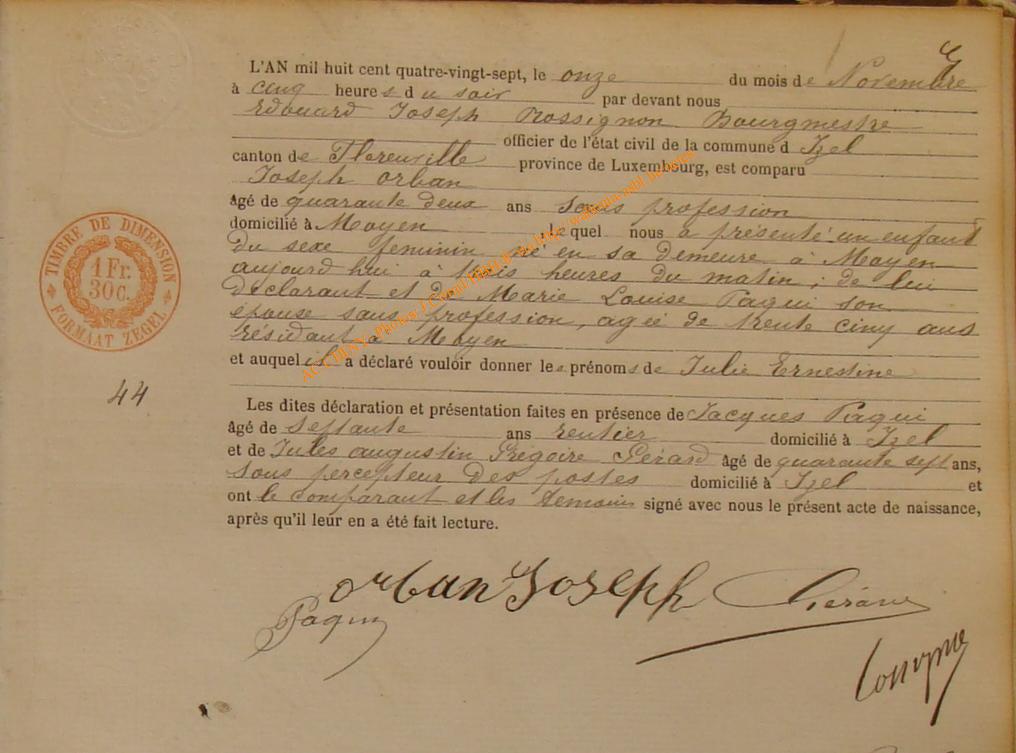 L'AN mil huit cent quatre-vingt-sept, le onze du mois de Novembre
à cinq heures du soir par devant nous
Edouard Joseph Rossignon Bourgmestre
officier de l'état civil de la commune d Izel
canton de Florenville province de Luxembourg, est comparu
Joseph Orban
âgé de quarante deux ans sans profession
domicilié à Moyen lequel nous a présenté un enfant
du sexe feminin, né en sa demeure à Moyen
aujourd'hui à trois heures du matin, de lui
déclarant et de Marie Louise Paqui son
épouse sans profession, agée de trente cinq ans
résidant à Moyen
et auquel il a déclaré vouloir donner les prénoms de Julie Ernestine
TIMBRE DE DIMENSION
1 Fr.
30 c.
FORMAAT ZEGEL
44
Les dites déclaration et présentation faites en présence de Jacques Paqui
âgé de septante ans rentier domicilié à Izel
et de Jules augustin Grégoire Gérard âgé de quarante sept ans,
sous percepteur des postes domicilié à Izel et
ont le comparant et les temoins signé avec nous le présent acte de naissance,
après qu'il leur en a été fait lecture.
Orban Joseph Gérard
Paqui